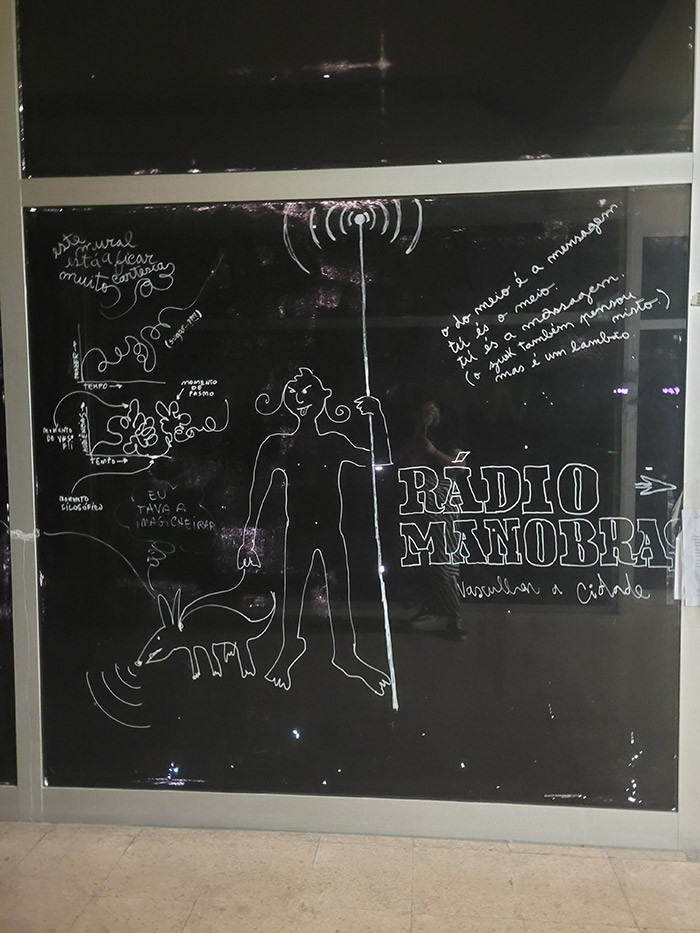 este mural
está a ficar
muito cartesia
PODER →
TEMPO →
MOMENTO
DE
PASMO
MOMENTO
TEMPO →
MOMENTO
FILOSÓFICO
EU
TAVA A
IMAGICHEIRAR
o do meio é a mensagem
tu és o meio.
tu és a mãssagem.
(o zizek também pensou
nisto.)
mas é um lambão
RÁDIO
MANOBRAS
Vasculhar a Cidade